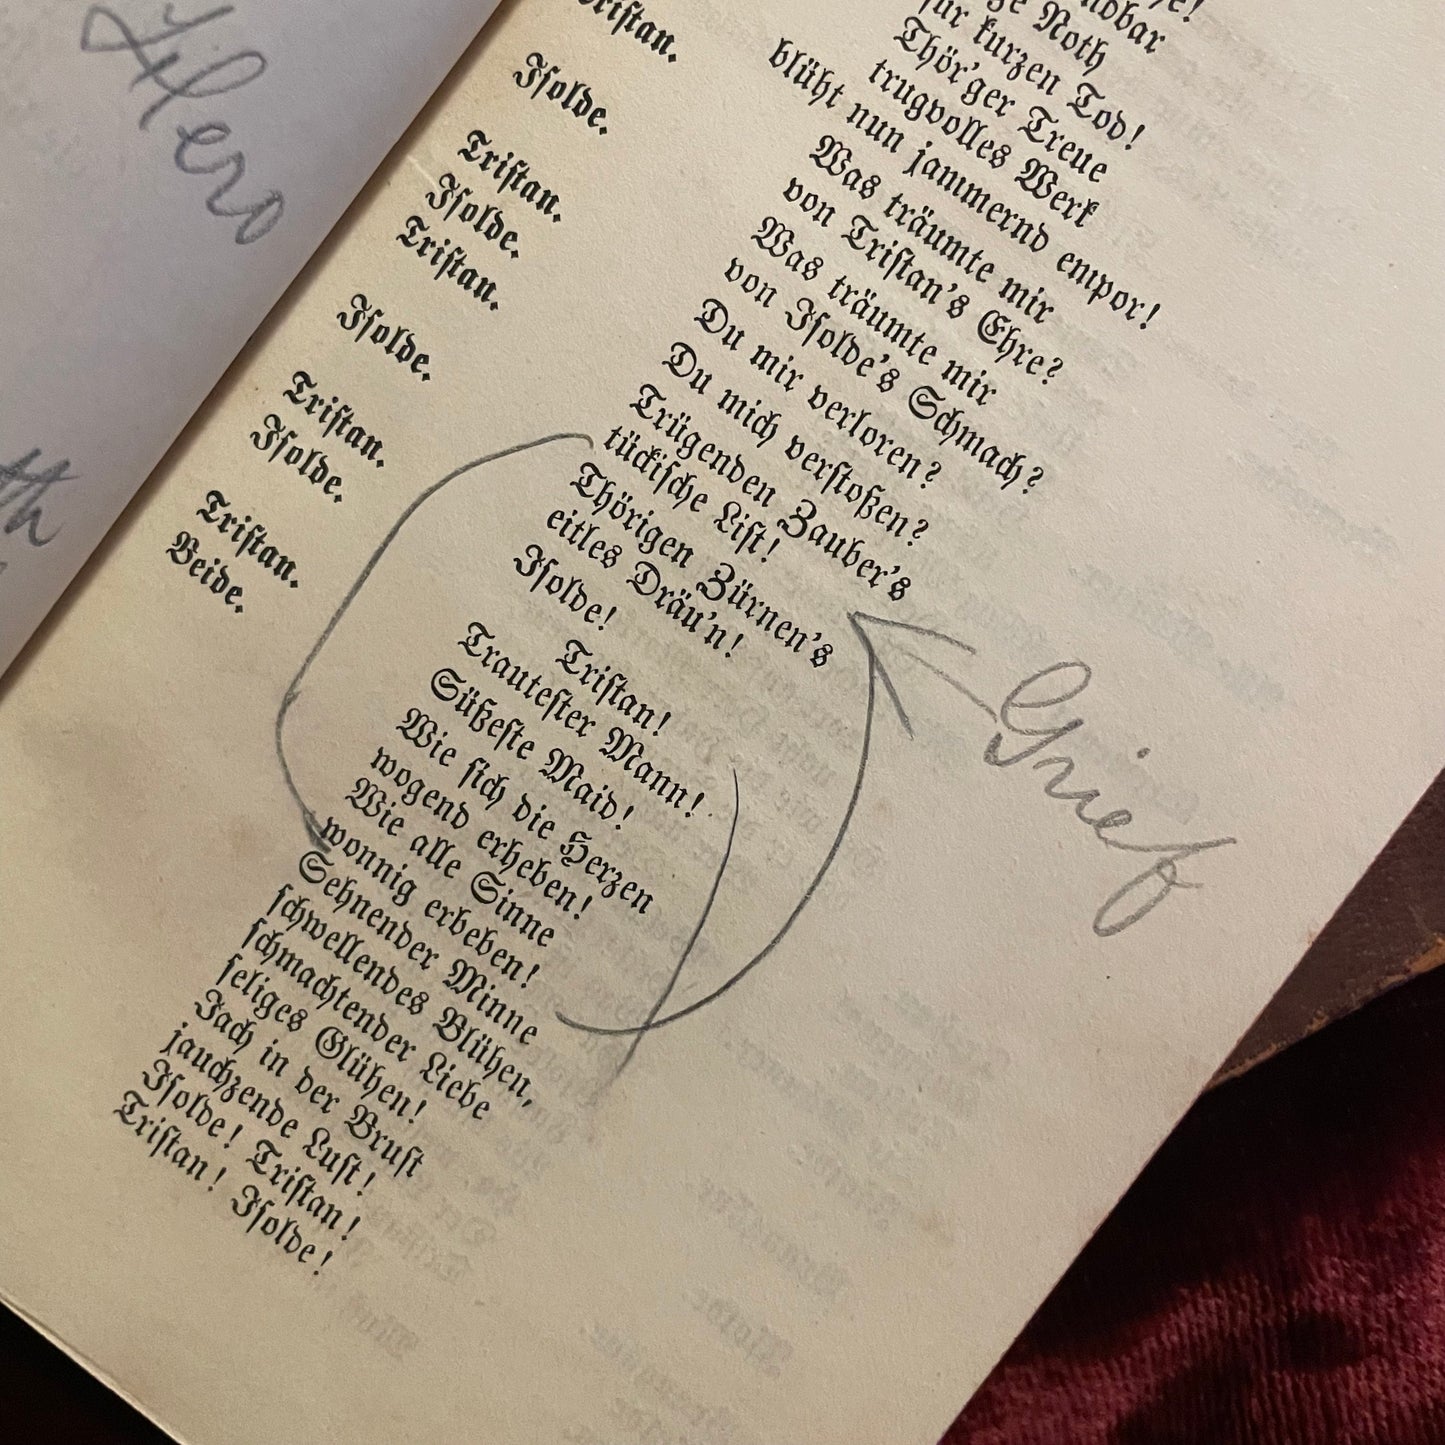 Hero
Tristan.
für kurzen Tod!
Thör'ger Treue
trugvolles Werk
blüht nun jammernd empor!
Was träumte mir
von Tristan's Ehre?
Isolde. Was träumte mir
von Isolde's Schmach?
Tristan. Du mir verloren?
Isolde. Du mich verstoßen?
Tristan. Trügenden Zauber's
tückische List!
Isolde. Thörigen Zürnen's
eitles Dräu'n!
Tristan. Isolde!
Isolde. Tristan!
Trautester Mann!
Tristan. Süßeste Maid!
Beide. Wie sich die Herzen
wogend erheben!
Wie alle Sinne
wonnig erbeben!
Sehnender Minne
schwellendes Blühen,
schmachtender Liebe
seliges Glühen!
Jach in der Brust
jauchzende Lust!
Isolde! Tristan!
Tristan! Isolde!
Grief